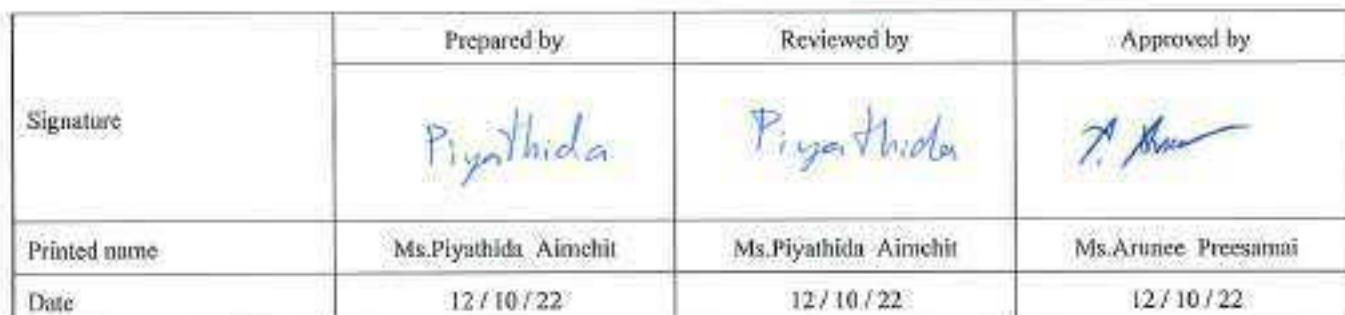 Prepared by Reviewed by Approved by
Signature Piyathida Piyathida
Printed name Ms.Piyathida Aimchit Ms.Piyathida Aimchit Ms.Arunee Preesamai
Date 12 / 10 / 22 12 / 10 / 22 12 / 10 / 22